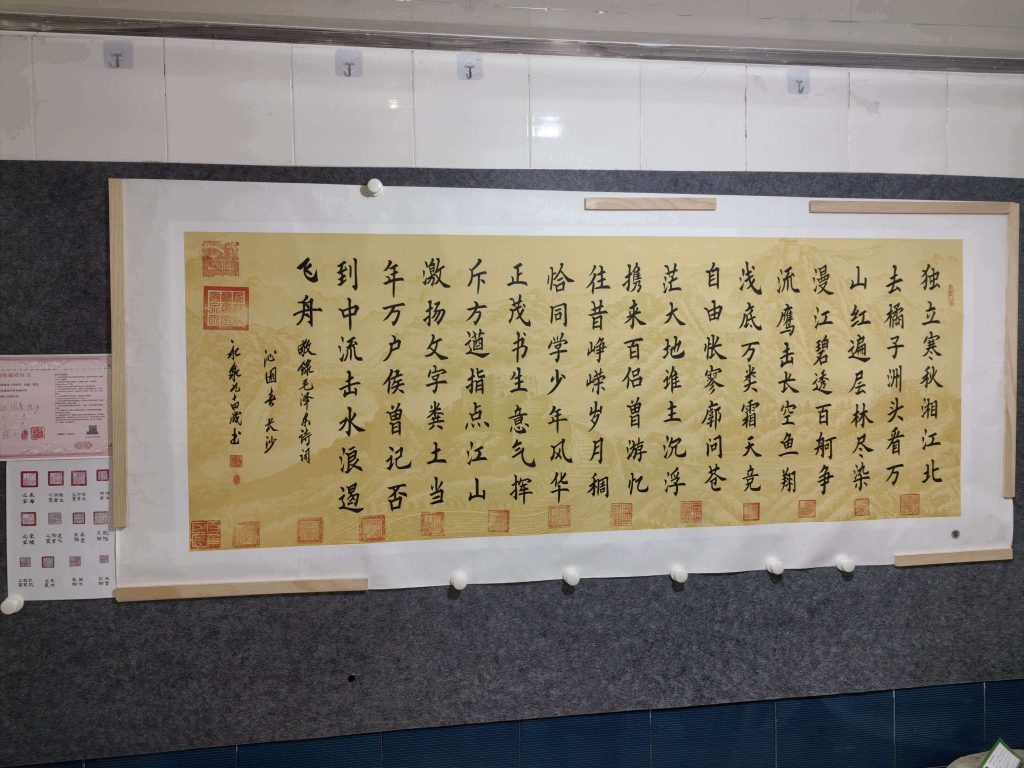 独立寒秋湘江北
去橘子洲头看万
山红遍层林尽染
漫江碧透百舸争
流鹰击长空鱼翔
浅底万类霜天竞
自由怅寥廓问苍
茫大地谁主沉浮
携来百侣曾游忆
往昔峥嵘岁月稠
恰同学少年风华
正茂书生意气挥
斥方遒指点江山
激扬文字粪土当
年万户侯曾记否
到中流击水浪遏
飞舟
敬録毛泽东诗词
沁園春 长沙